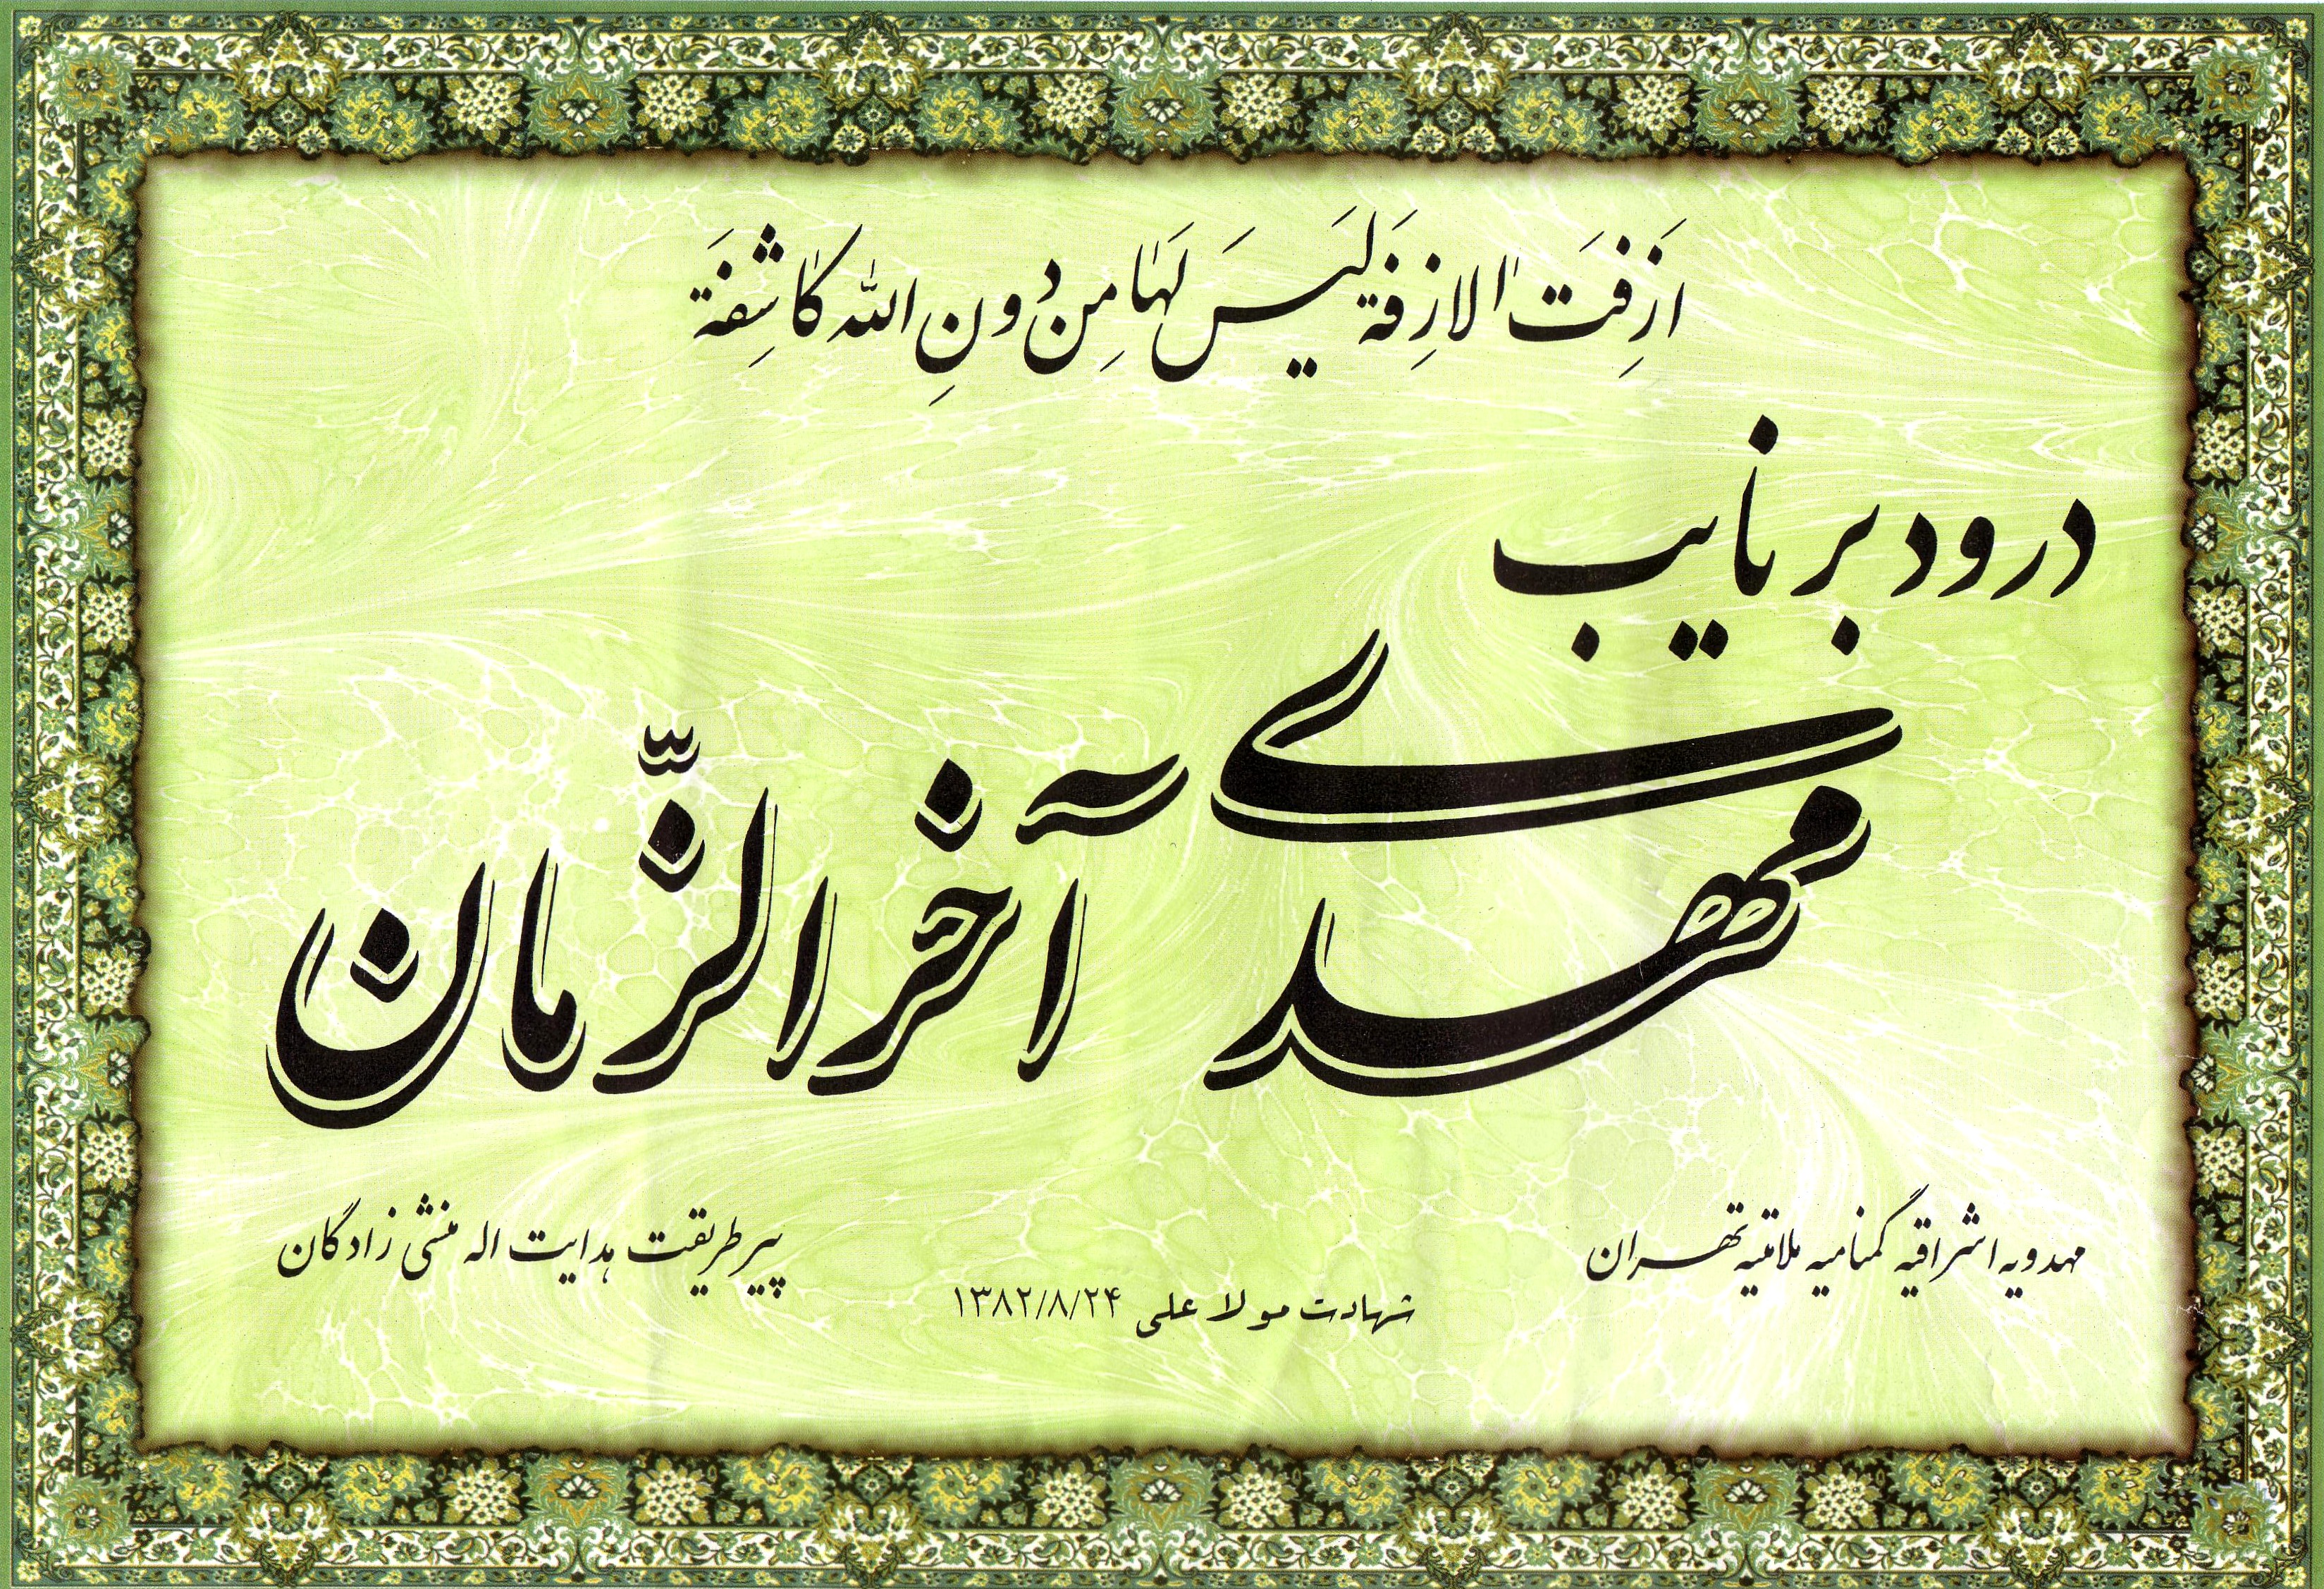 اَزِفَتِ الازِفَة لَیسَ لَهٰا مِن دُونِ اللّه کاشِفَة
درود بر نایب
مهدی آخر الزّمان
مهدویه اشراقیه گمنامیه ملامتیه تهران
پیر طریقت هدایت اله منشی زادگان
شهادت مولا علی ۱۳۸۲/۸/۲۴